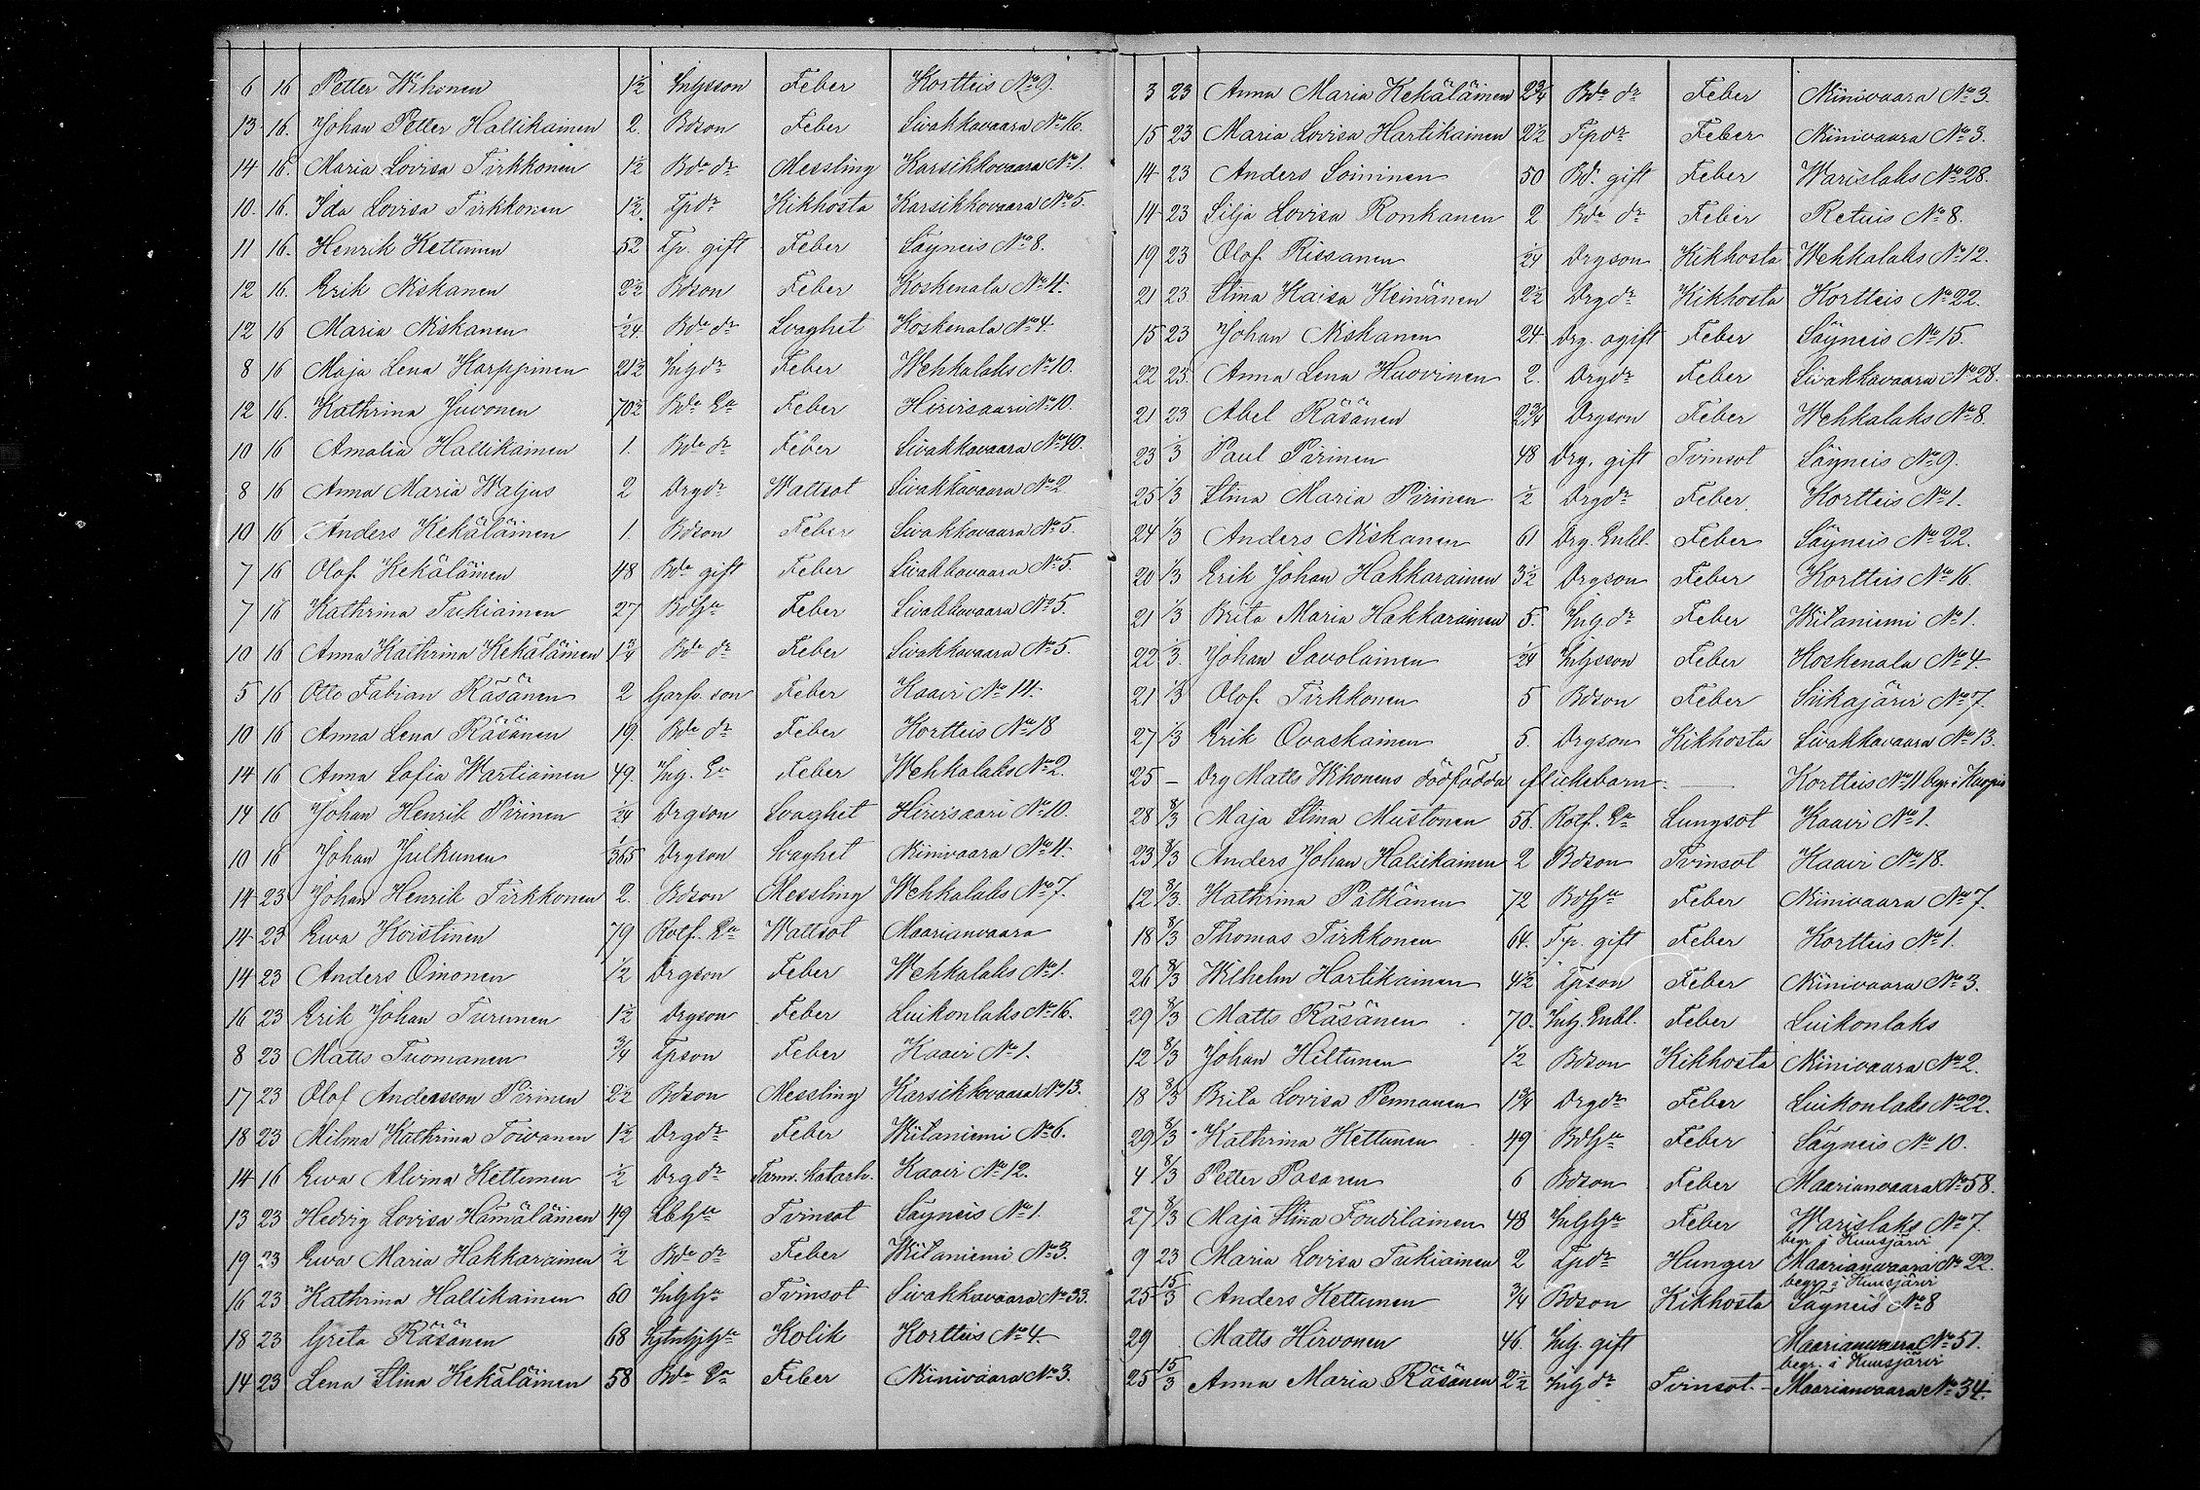 6 16 Petter Wihonen 1½ Inhysson Feber Kortteis No 9.
13 16. Johan Petter Hallikainen 2. Bdson Feber Sivakkavaara No 16.
14 16. Maria Lovisa Tirkkonen 1½ Bde dr Messling Karsikkovaara No 1.
10. 16. Ida Lovisa Tirkkonen 1½. Tpdr Kikhosta Karsikkovaara No 5.
11 16. Henrik Kettunen 52 Tp. gift Feber Säyneis No 8.
12 16. Erik Niskanen 2½ Bdson Feber Koskenala No 4.
12 16 Maria Niskanen 1/24. Bde dr Svaghet Koskenala No 4.
8 16 Maja Lena Karppinen 21½ Inhdr Feber Wehkalaks No 10.
12 16. Kathrina Juvonen 70½ Bde Ea Feber Hirvisaari No 10.
10 16 Amalia Hallikainen 1. Bde dr Feber Sivakkavaara No 40.
8 16 Anna Maria Waljus 2 Drgdr Wattsot Sivakkavaara No 2
10 16 Anders Kekäläinen 1. Bdson Feber Sivakkavaara No 5.
7 16 Olof Kekäläinen 48 Bde gift Feber Sivakkavaara No 5.
7 16 Kathrina Tukiainen 27 Bdhu Feber Sivakkavaara No 5.
10 16 Anna Kathrina Kekäläinen 1¾ Bde dr Feber Sivakkavaara No 5.
5 16 Otto Fabian Räsänen 2 Garfv. son Feber Kaavi No 14.
10 16 Anna Lena Räsänen 19. Bde dr Feber Kortteis No 18
14 16 Anna Sofia Wartiainen 49. Inh. Ea Feber Wehkalaks No 2.
14 16 Johan Henrik Pirinen 1/24 Drgson Svaghet Hirvisaari No 10.
10 16 Johan Julkunen 1/365 Drgson Svaghet Niinivaara No 4.
14 23 Johan Henrik Tirkkonen 2. Bdson Messling Wehkalaks No 7.
14 23 Ewa Koistinen 79 Rotf. Ea Wattsot Maarianvaara
14 23 Anders Oinonen ½ Drgson Feber Wehkalaks No 1.
16 23 Erik Johan Turunen 1½ Drgson Feber Luikonlaks No 16.
8 23 Matts Tuomanen ¾ Tpson Feber Kaavi No 1.
17 23 Olof Andersson Pirinen 2½ Bdson Messling Karsikkovaara No 13.
18 23 Milma Kathrina Toivanen 1½ Drgdr Feber Wiitaniemi No 6.
14 16 Ewa Alvina Kettunen ½ Drgdr Tarm. katarh. Kaavi No 12.
13 23 Hedvig Lovisa Hämäläinen 49 Lbhu Tvinsot Säyneis No 1.
19 23 Ewa Maria Hakkarainen ½ Bde dr Feber Wiitaniemi No 3.
16 23 Kathrina Hallikainen 60 Inhhu Tvinsot Sivakkavaara No 33.
18 23 Greta Räsänen 68 Kolik Kortteis No 4
14 23 Lena Stina Kekäläinen 58 Bde Ea Feber Niinivaara No 3.
3 23 Anna Maria Kekäläinen 2¾ Bde dr Feber Niinivaara No 3.
15 23 Maria Lovisa Hartikainen 2½ Tpdr Feber Niinivaara No 3.
14 23 Anders Soininen 50 Bd. gift Feber Warislaks No 28.
14 23 Silja Lovisa Ronkanen 2. Bde dr Feber Retuis No 8.
19 23 Olof Rissanen 1/24 Drgson Kikhosta Wehkalaks No 12.
21 23. Stina Kaisa Keinänen 2½ Drgdr Kikhosta Kortteis No 22.
15 23 Johan Niskanen 24. Drg. ogift Feber Säyneis No 15.
22 23. Anna Lena Huovinen 2. Drgdr Feber Sivakkavaara No 28.
21 23 Abel Räsänen 2¾ Drgson Feber Wehkalaks No 8.
23 1/3 Paul Pirinen 48 Drg. gift Tvinsot Säyneis No 9.
25 1/3 Stina Maria Pirinen ½ Drgdr Feber. Kortteis No 1.
24 1/3 Anders Niskanen 61 Drg. Enkl. Feber Säyneis No 22.
20 1/3 Erik Johan Hakkarainen 3½ Drgson Feber Kortteis No 16.
21 1/3 Brita Maria Hakkarainen 5. Inhdr Feber Wiitaniemi No 1.
22 1/3. Johan Savolainen 1/24 Inhysson Feber Koskenala No 4.
21 1/3 Olof Tirkkonen 5 Bdson Feber Siikajärvi No 7.
27 1/3 Erik Ovaskainen 5. Drgson Kikhosta Sivakkavaara No 13.
25 — Drg Matts Wihonens dödfödda flickebarn. — Kortteis No 11 begr. i Kuopio
28 8/3 Maja Stina Mustonen 56. Rotf. Ea Lungsot Kaavi No 1.
23 8/3 Anders Johan Hallikainen 2 Bdson Tvinsot Kaavi No 18.
12 8/3. Kathrina Pätkänen 72 Bdhu Feber Niinivaara No 7.
18 8/3 Thomas Tirkkonen 64. Tp. gift Feber Kortteis No 1.
26 8/3 Wilhelm Hartikainen 4½ Tpson Feber Niinivaara No 3.
29 8/3 Matts Räsänen 70. Inh. Enkl. Feber Luikonlaks
12 8/3 Johan Hiltunen ½ Bdson Kikhosta Niinivaara No 2.
18 8/3 Brita Lovisa Pennanen 1¾ Drgdr Feber Luikonlaks No 22.
29 8/3 Kathrina Kettunen 49 Bdhu Feber Säyneis No 10.
4 8/3 Petter Pasanen 6 Bdson Feber Maarianvaara No 58.
27 8/3 Maja Stina Toudilainen 48 Inhhu Feber Warislaks No 7.
begr i Kuusjärvi
9 23 Maria Lovisa Tukiainen 2 Tpdr Hunger Maarianvaara No 22.
begr i Kuusjärvi
25 15/3 Anders Kettunen ¾ Bdson Kikhosta Säyneis No 8
29 Matts Hirvonen 46. Inh. gift Maarianvaara No 51.
begr. i Kuusjärvi
25 15/3 Anna Maria Räsänen 2½ Inhdr Tvinsot. Maarianvaara No 34.